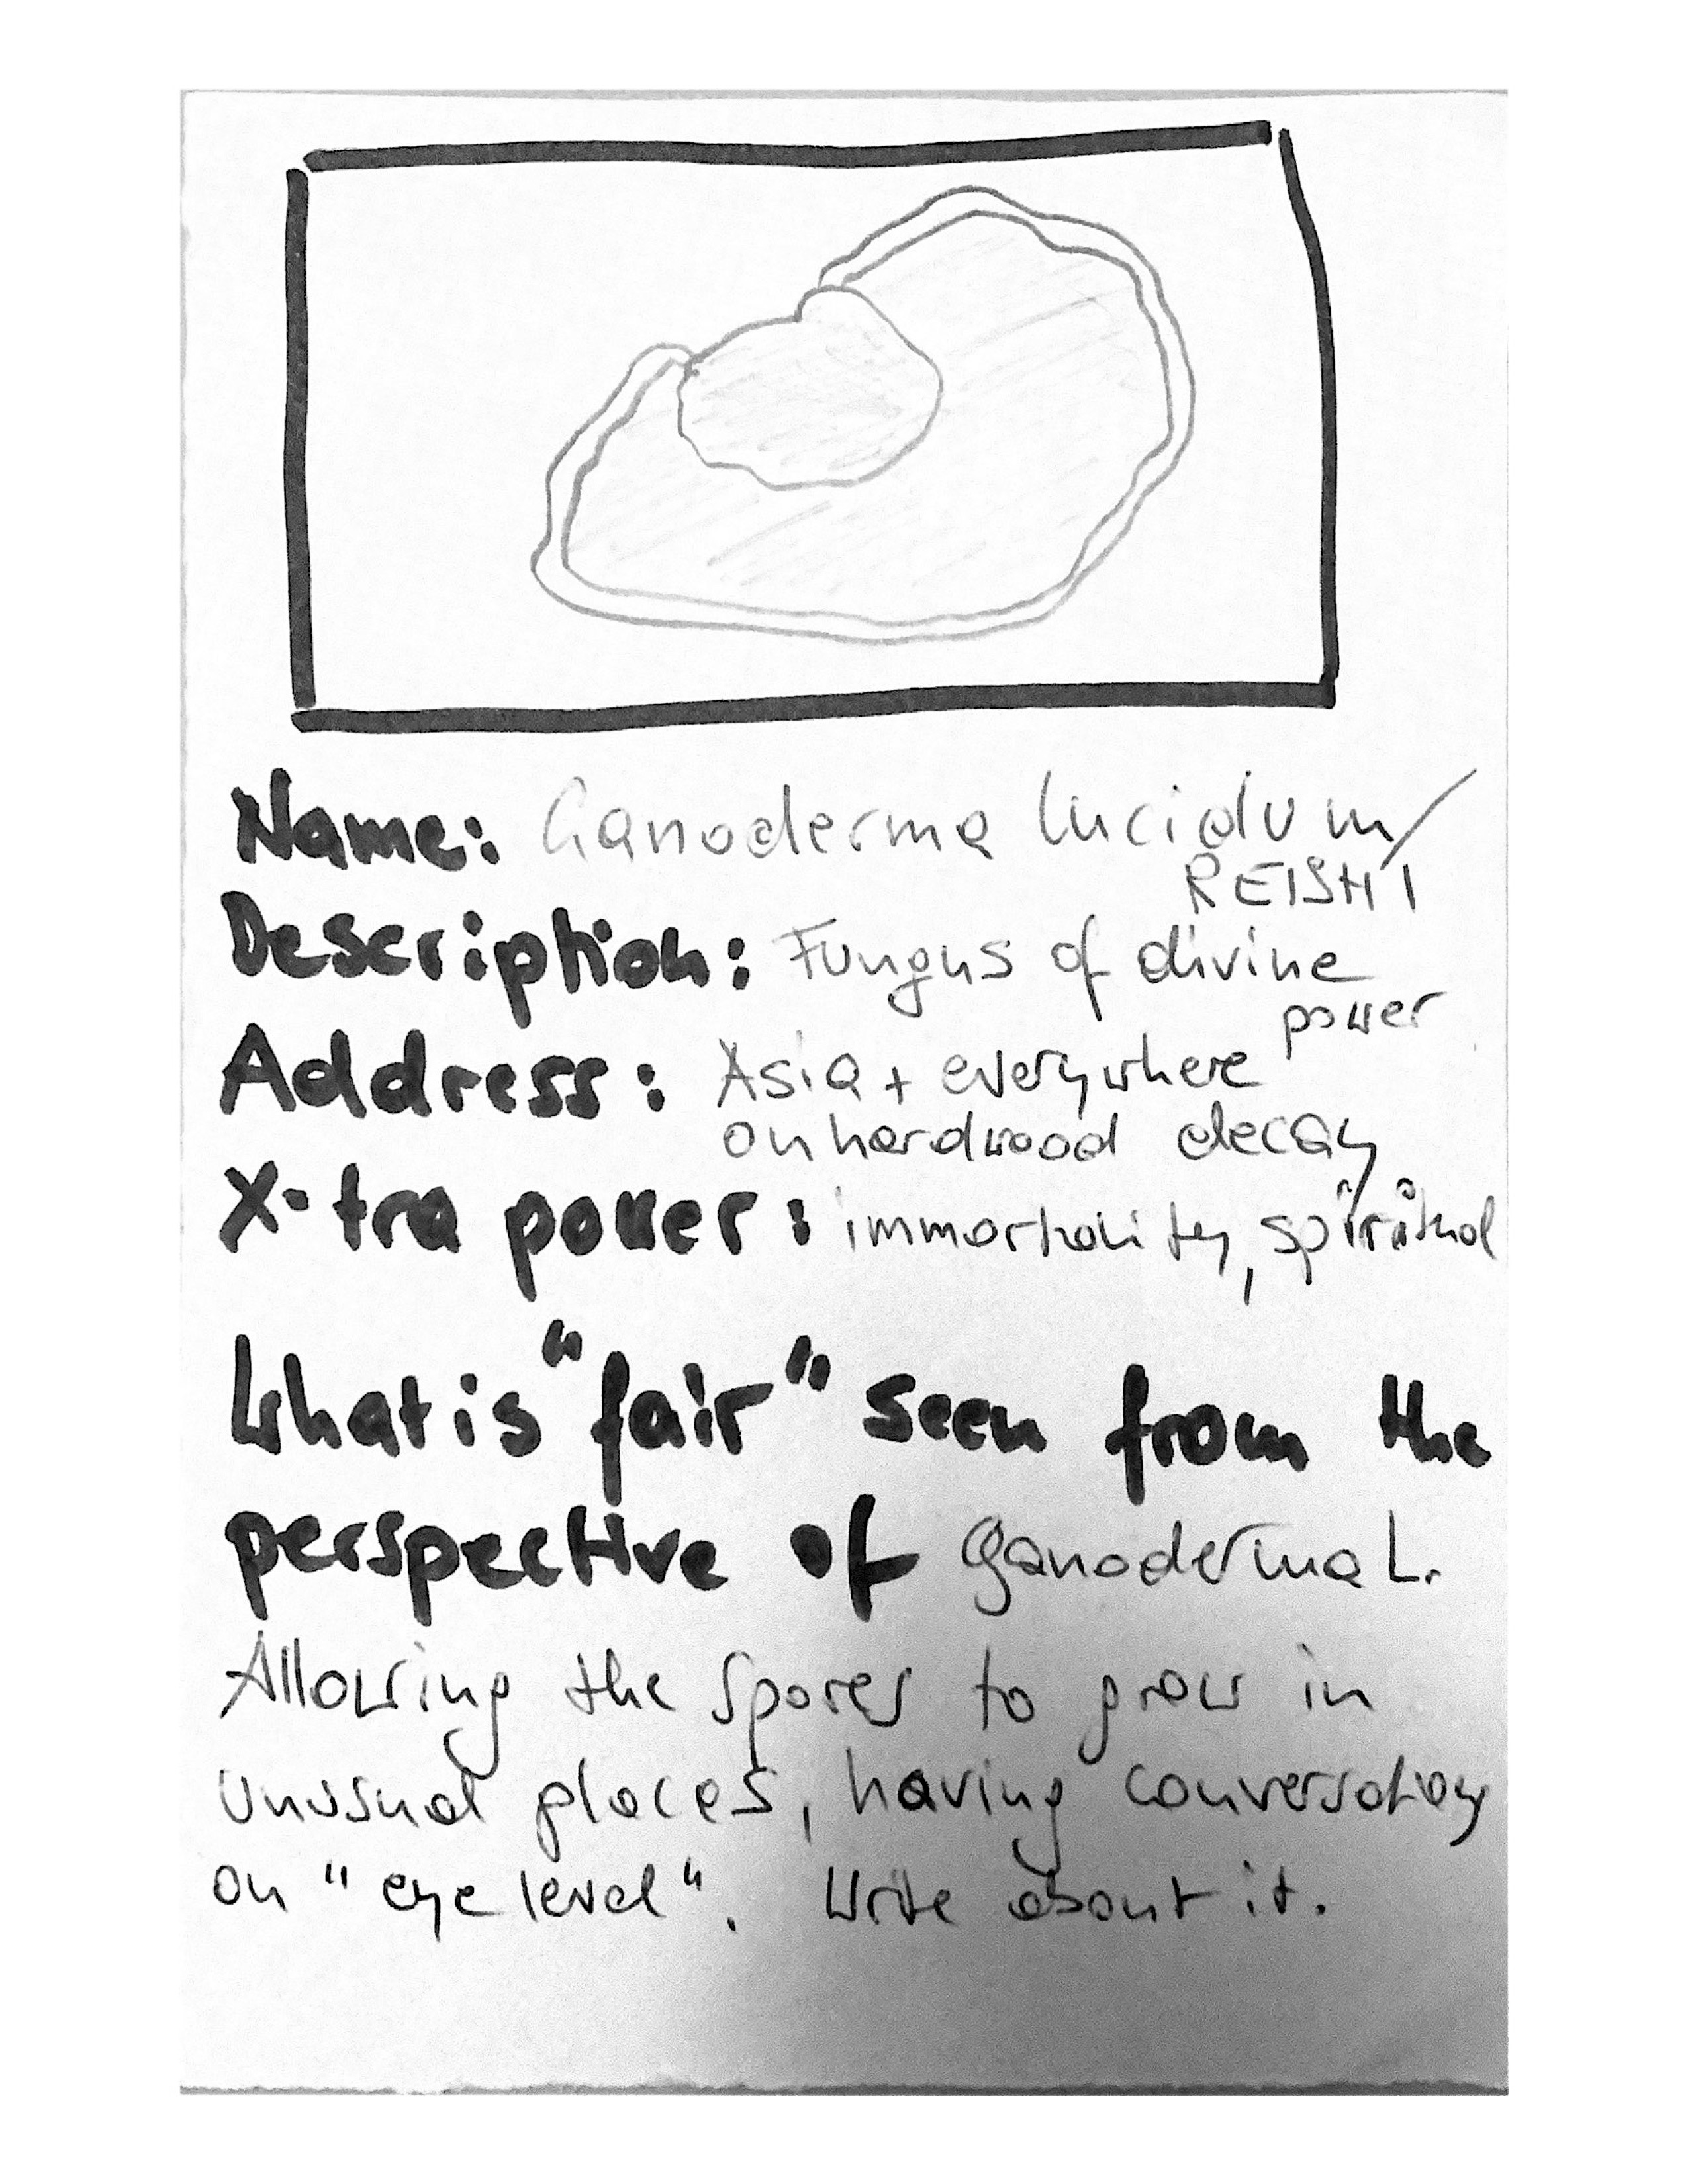 Name: Ganoderma lucidum/
REISHI
Description: Fungus of divine
power
Address: Asia + everywhere
on hardwood decay
X-tra power: immortality, spiritual
What is "fair" seen from the
perspective of Ganoderma L.
Allowing the spores to grow in
unusual places, having conversation
on "eye level". Write about it.